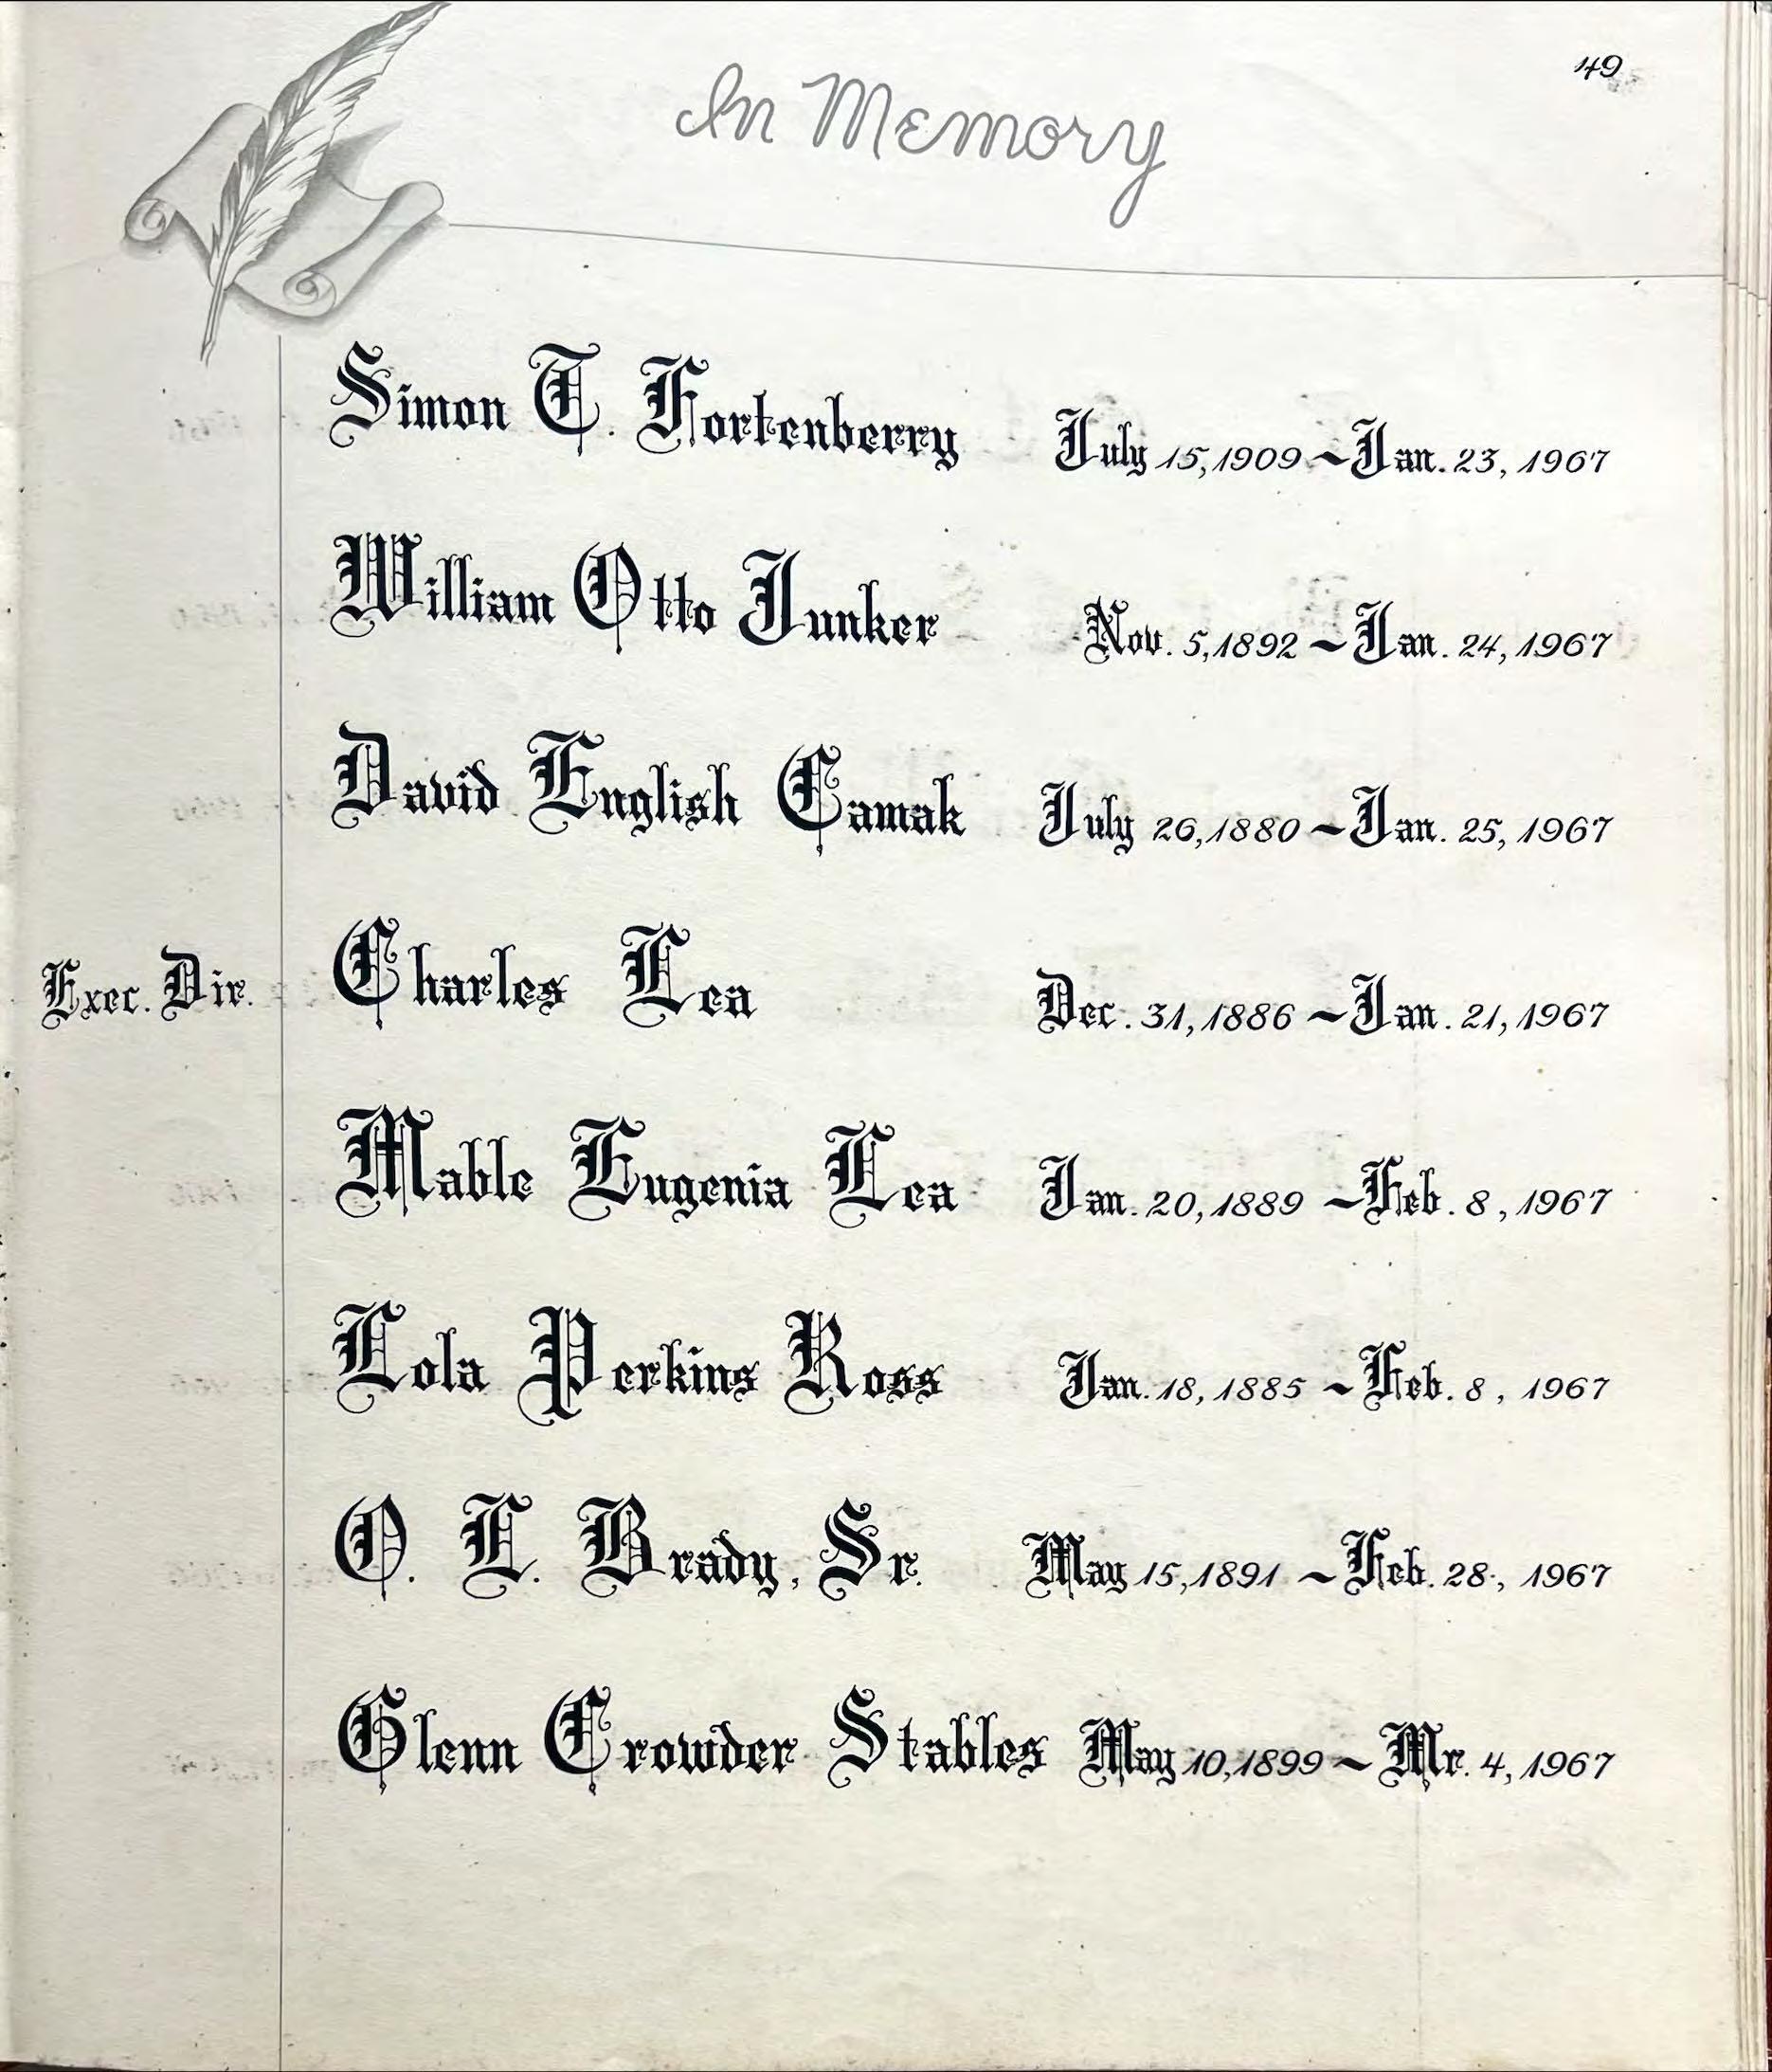 49
In Memory
Simon T. Fortenberry July 15, 1909 ~ Jan. 23, 1967
William Otto Junker Nov. 5, 1892 ~ Jan. 24, 1967
David English Camak July 26, 1880 ~ Jan. 25, 1967
Exec. Dir. Charles Lea Dec. 31, 1886 ~ Jan. 21, 1967
Mable Eugenia Lea Jan. 20, 1889 ~ Feb. 8, 1967
Lola Perkins Ross Jan. 18, 1885 ~ Feb. 8, 1967
O. L. Brady, Sr. May 15, 1891 ~ Feb. 28, 1967
Glenn Crowder Stables May 10, 1899 ~ Mr. 4, 1967